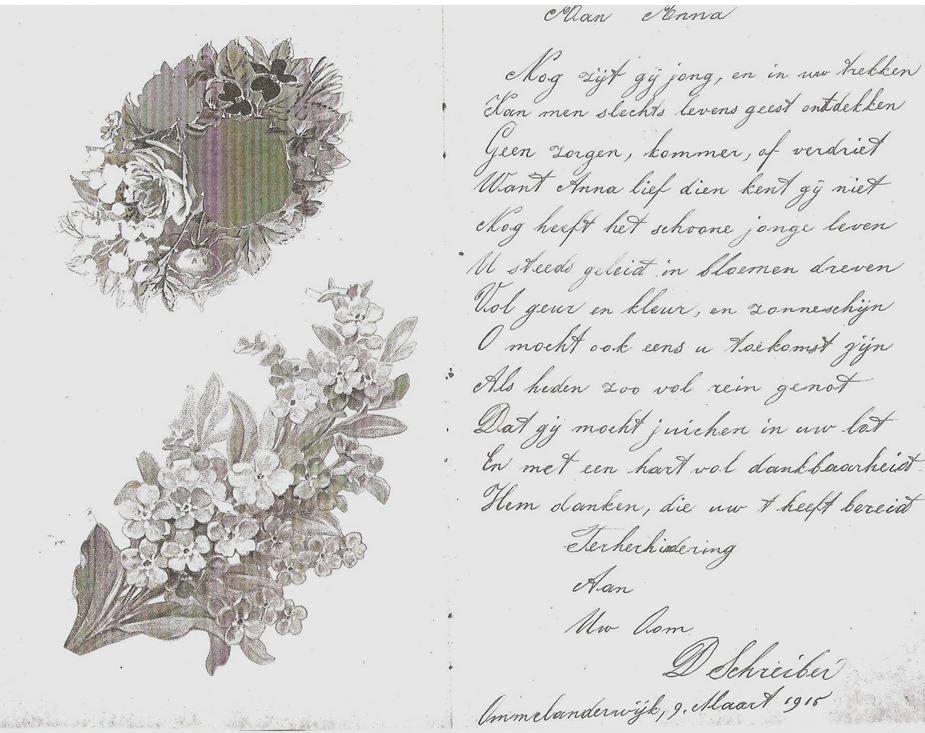 Aan Anna
Nog zijt gij jong, en in uw trekken
Kan men slechts levens geest ontdekken
Geen zorgen, kommer, of verdriet
Want Anna lief dien kent gij niet
Nog heeft het schoone jonge leven
U steeds geleid in bloemen dreven
Vol geur en kleur, en zonneschijn
O mocht ook eens u toekomst zijn
Als heden zoo vol rein genot
Dat gij mocht juichen in uw lot
En met een hart vol dankbaarheid
Hem danken, die uw t heeft bereid
Terherindering
Aan
Uw Oom
D Schreiber
Ommelanderwijk, 9. Maart